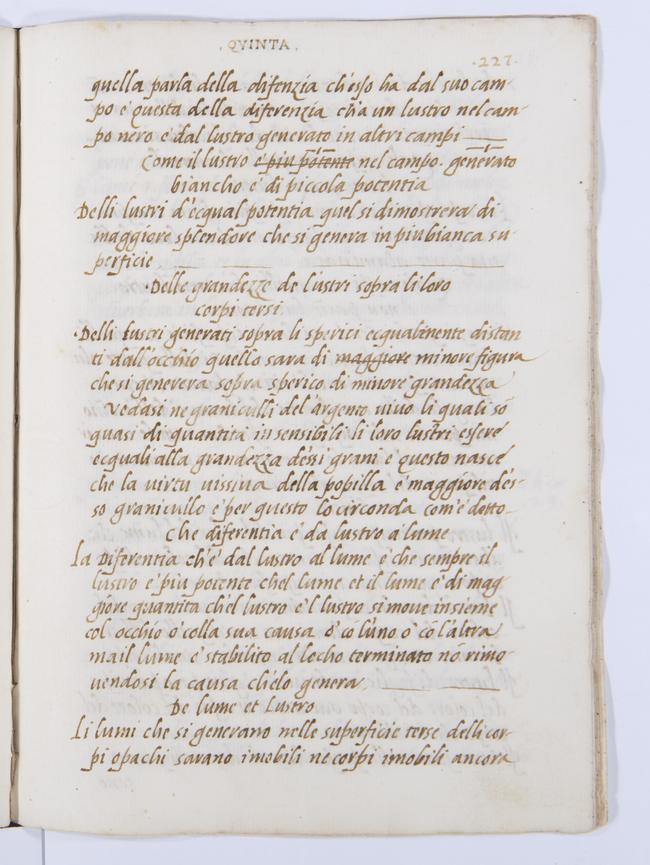 . QVINTA .
. 227 .
quella parla della difenzia ch'esso ha dal suo cam-
po e questa della diferenzia ch'a un lustro nel cam-
po nero e dal lustro generato in altri campi
Come il lustro e piu potente nel campo. generato
biancho e' di piccola potentia
Delli lustri d'ecqual potentia quel si dimostrera di
maggiore splendore che si genera in piu bianca su-
perficie
·Delle grandezze de lustri sopra li loro
corpi tersi
·Delli lustri generati sopra li sperici ecqualmente distan
ti dall'occhio quello sara di maggiore minore figura
che si generera sopra sperico di minore grandezza
Vedasi ne graniculli del argento vivo li quali sō
quasi di quantita insensibili li loro lustri essere
ecquali alla grandezza dessi grani e questo nasce
che la virtu uissiua della popilla e' maggiore d'es-
so granicullo e per questo lo circonda com'e detto
che diferentia e' da lustro a lume
La Diferentia ch'e' dal lustro al lume e' che sempre il
lustro e' piu potente chel lume et il lume e' di mag-
giore quantita ch'el lustro e'l lustro si move insieme
col occhio o' colla sua causa o' cō l'uno o' co l'altra
ma il lume e' stabilito al locho terminato nō rimo-
uendosi la causa ch'elo genera
De lume et Lustro
Li lumi che si generano nelle superficie terse delli cor-
pi opachi sarano imobili ne corpi imobili ancora